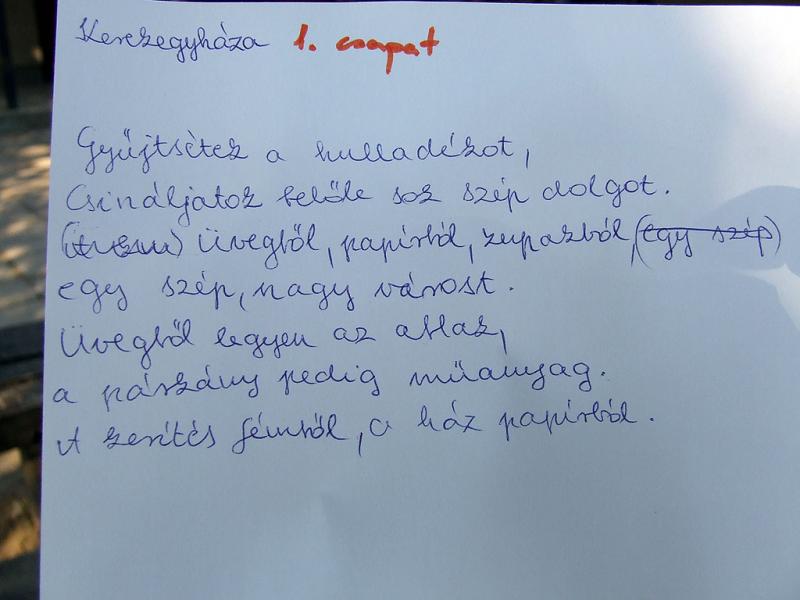 Kerekegyháza 1. csapat
Gyűjtsétek a hulladékot,
Csináljatok belőle sok szép dolgot.
Üvegből, papírból, kupakból, (egy szép)
egy szép, nagy várost.
Üvegből legyen az ablak,
a párkány pedig műanyag.
A kerítés fémből, a ház papírból.